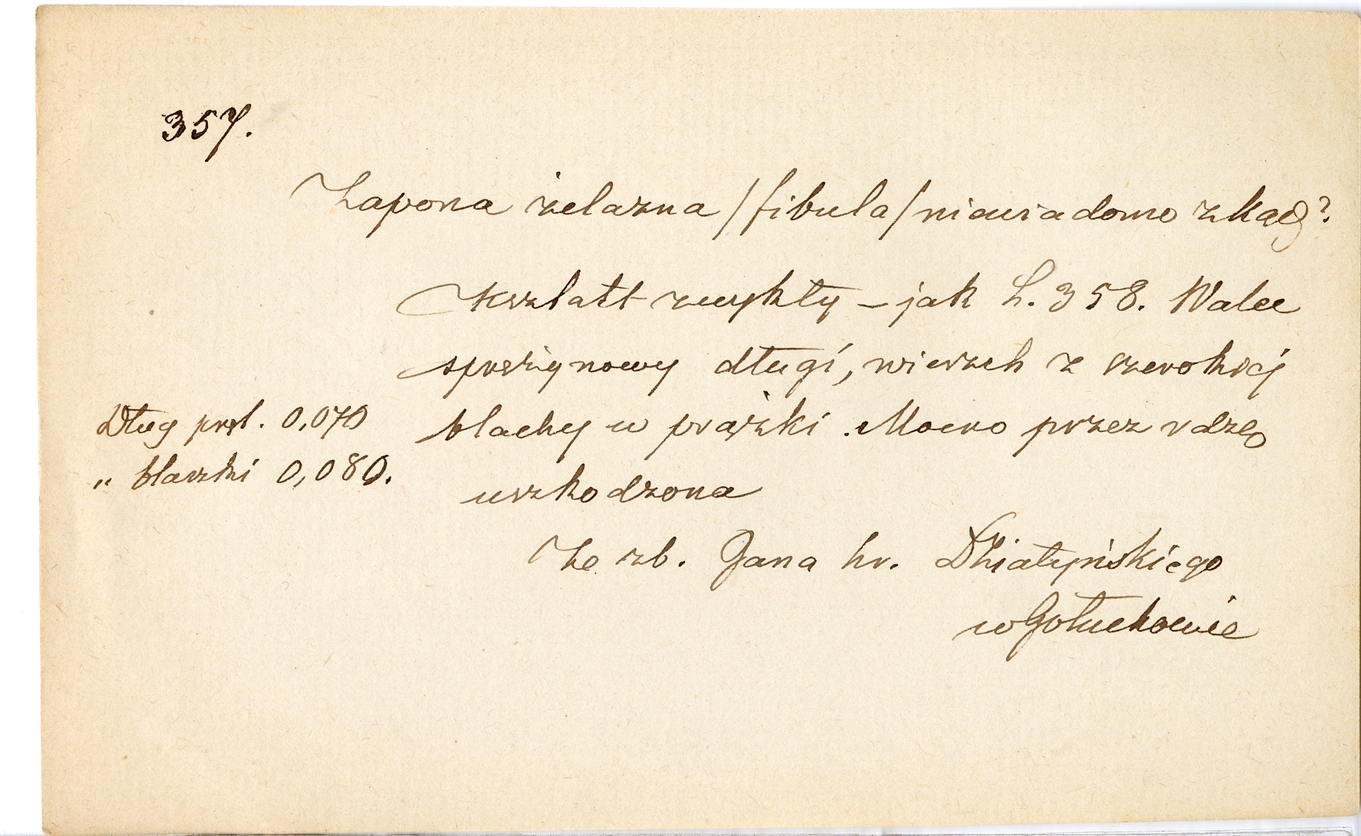 357.
Zapona żelazna /fibula/ niewiadomo zkąd?
Kształt zwykły – jak L. 358. Walec
sprężynowy długi, wierzch z szerokiej
blachy w prążki. Mocno przez rdzę
uszkodzona
Dług pręt. 0,070
„ blaszki 0,080.
Ze zb. Jana hr. Działyńskiego
w Gołuchowie